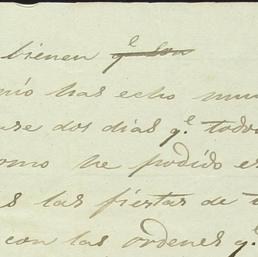 bienen q.e son
mio has echo mu
dos dias q.e todo
omo he podido es
s las fiestas de
con las ordenes q.e